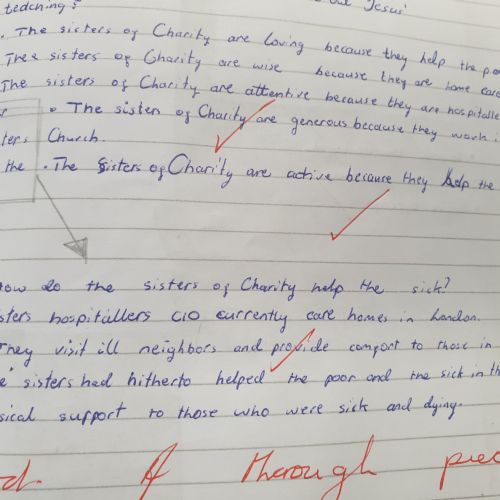 teaching? Jesus'
. The sisters of Charity are loving because they help the
The sisters of Charity are wise because they are home care
The sisters of Charity are attentive because they are
• The sisters of Charity are generous because they work.
Church.
the . The Sisters of Charity are active because they help the
How do the sisters of Charity help the sick?
hospitallers currently care homes in London.
They visit ill neighbors and provide comfort to those in
sisters had hitherto helped the poor and the sick in
support to those who were sick and dying.
A thorough